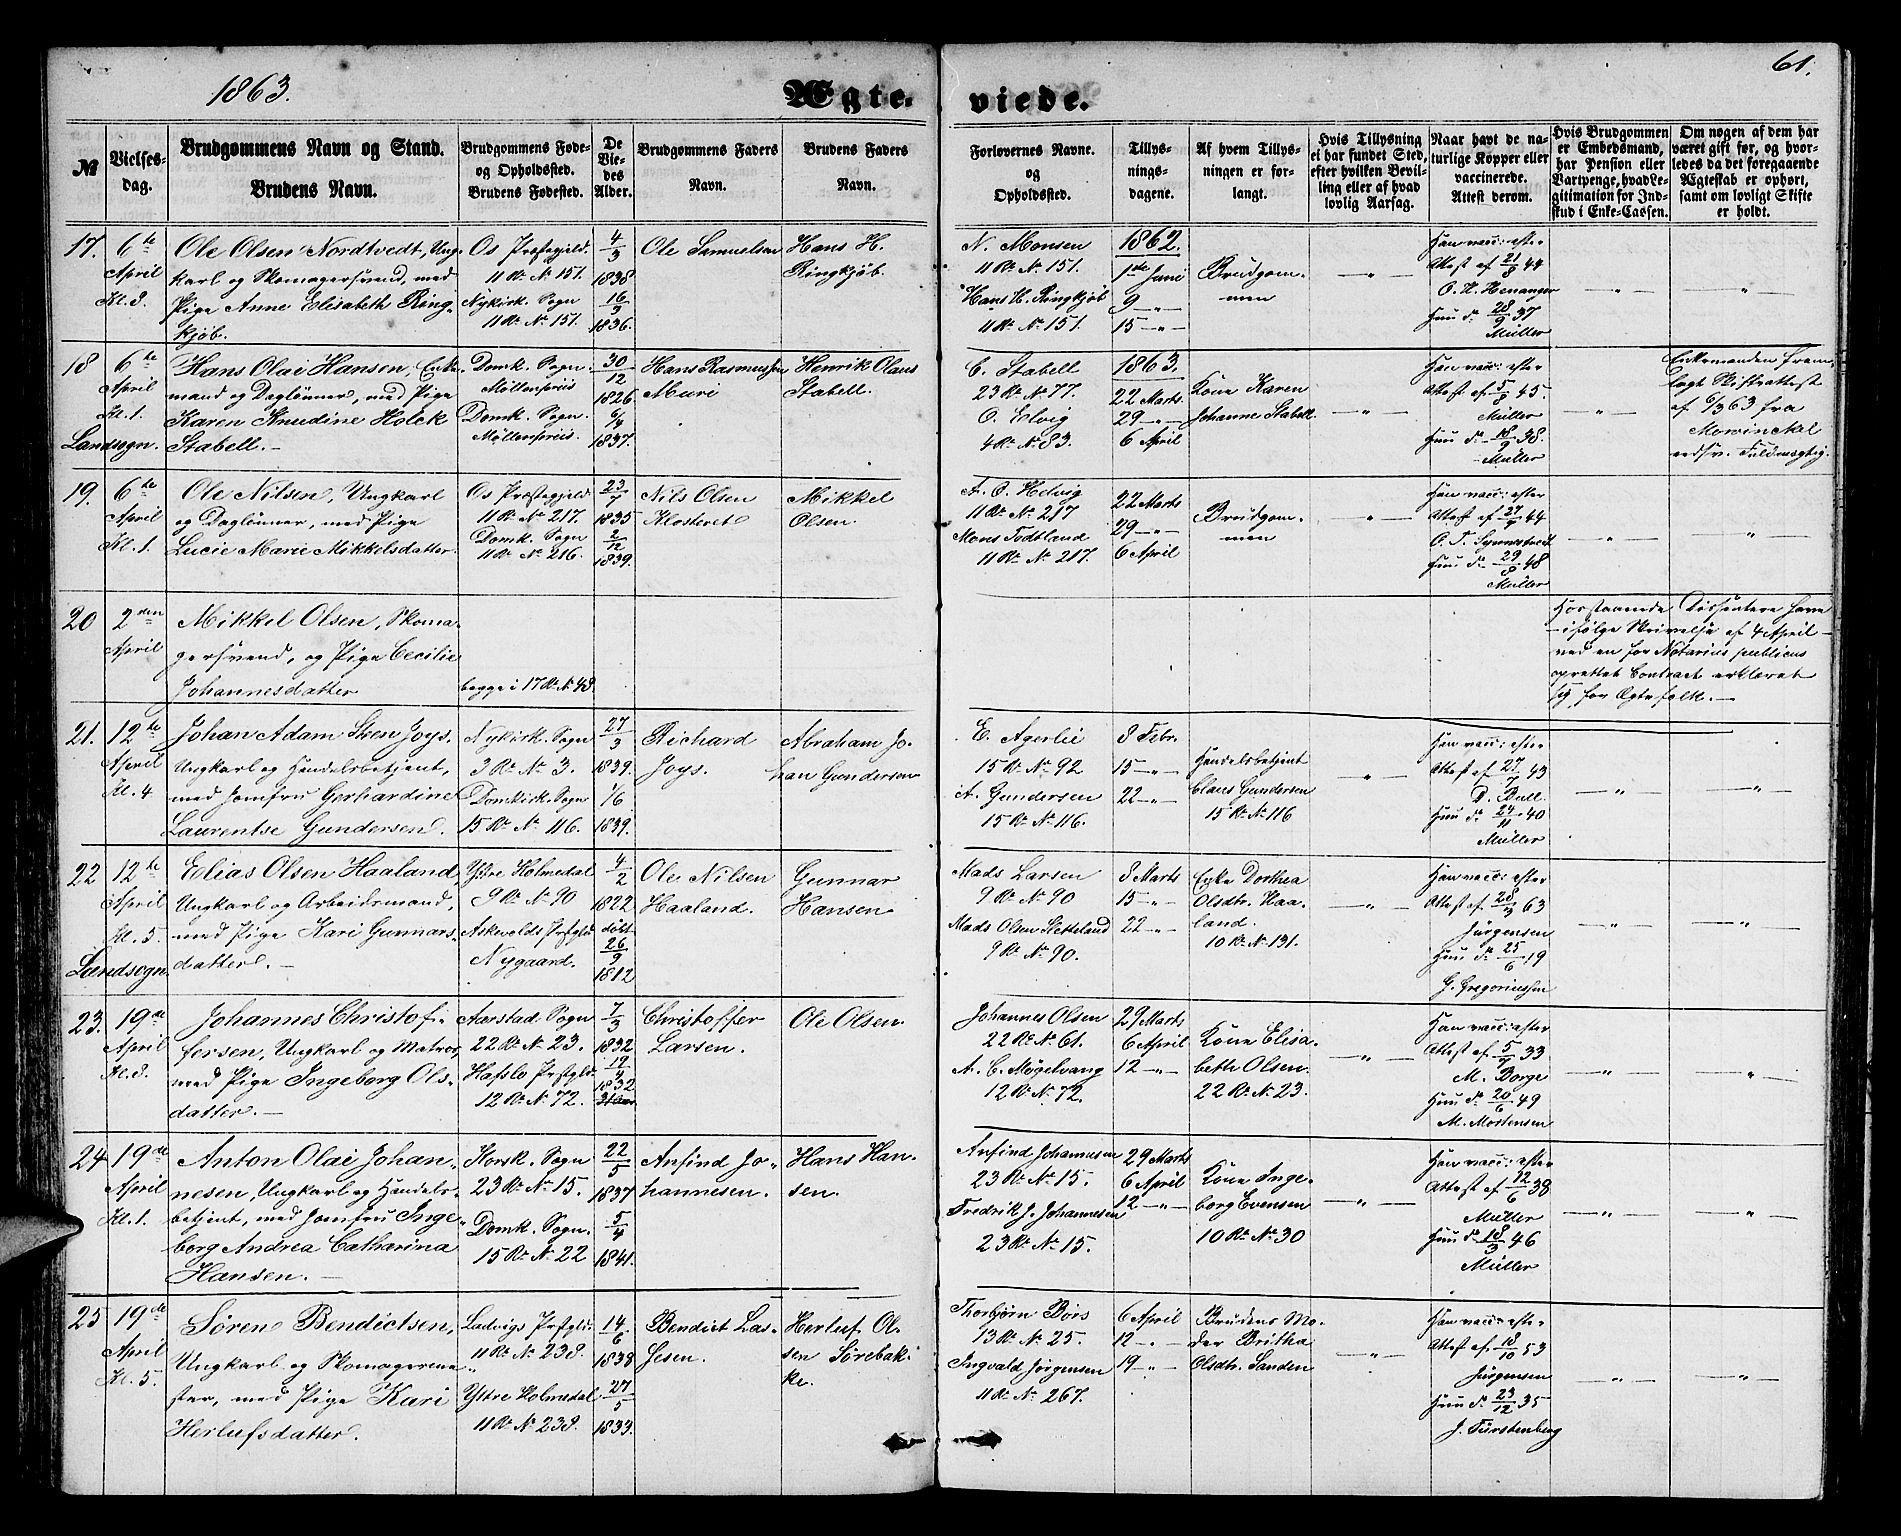 1863.
Ægte-
viede.
61.
№
Vielses-
dag.
Brudgommens Navn og Stand.
Brudens Navn.
Brudgommens Føde-
og Opholdssted.
Brudens Fødested.
De
Vie-
des
Alder.
Brudgommens Faders
Navn.
Brudens Faders
Navn.
Forlovernes Navne.
og
Opholdssted.
Tillys-
nings-
dagene.
Af hvem Tillys-
ningen er for-
langt.
Hvis Tillysning
ei har fundet Sted,
efter hvilken Bevil-
ling eller af hvad
lovlig Aarsag.
Naar havt de na-
turlige Kopper eller
vaccinerede.
Attest derom.
Hvis Brudgommen
er Embedsmand,
har Pension eller
Vartpenge, hvad Le-
gitimation for Ind-
skud i Enke-Cassen.
Om nogen af dem har
været gift før, og hvor-
ledes da det foregaaende
Ægteskab er ophørt,
samt om lovligt Skifte
er holdt.
17.
6te
April
Kl. 8.
Ole Olsen Nordtvedt, Ung-
karl og Skomagersvend, med
Pige Anne Elisabeth Ring-
kjøb.
Os Præstegjeld.
11 Rd. No 151.
Nykirk. Sogn
11 Rd. No 151.
4/3
1838
16/9
1836.
Ole Samuelsen
Hans H.
Ringkjøb.
N. Monsen
11 Rd. No 151.
Hans H. Ringkjøb
11 Rd. No 151.
1862.
1ste Juni
9 — " —
15 — " —
Brudgom-
men
— " —
Han vacc: efter
Attest af 21/8 44
O. H. Henanger
Hun do 28/9 37
Müller
— " —
"
18
6te
April
Kl. 1.
Landsogn.
Hans Olai Hansen, Enke-
mand og Daglønner, med Pige
Karen Knudine Holck
Stabell. —
Domk. Sogn.
Møllenpriis
Domk. Sogn.
Møllenpriis.
30/12
1826
6/4
1837.
Hans Rasmussen
Muri
Henrik Olaus
Stabell.
C. Stabell
23 Rd. No 77.
O. Elvig
4 Rd. No 83.
1863.
22 Marts
29 — " —
6 April
Kone Karen
Johanne Stabell
— " —
Han vacc: efter
Attest af 5/8 45.
Müller
Hun do 18/9 38.
Müller
— " —
Enkemanden frem-
lagt Skifteattest
af 6/3 63 fra
Mowinckel
edsv. Fuldmægtig.
19.
6te
April
Kl. 1.
Ole Nilsen, Ungkarl
og Daglønner, med Pige
Lucie Marie Mikkelsdatter.
Os Præstegjeld.
11 Rd. No 217.
Domk. Sogn
11 Rd. No 216.
23/7
1835
2/12
1839.
Nils Olsen
Klosteret
Mikkel
Olsen.
A. O. Helvig
11 Rd. No 217
Mons Todtland
11 Rd. No 217.
22 Marts
29 — " —
6 April
Brudgom-
men
— " —
Han vacc: efter
Hun do 29/8 48
Müller
— " —
"
20
2den
April
Mikkel Olsen, Skoma-
gersvend, og Pige Cecilie
Johannesdatter
begge i 17 Rd. No 48.
Forstaaende Dissentere have
ifølge Skrivelse af 4 April
ved en for Notarius publicus
oprettet Contract erklæret
sig for Ægtefolk. —
21.
12te
April
Kl. 4
Johan Adam Steen Joys.
Ungkarl og Handelsbetjent,
med Jomfru Gerhardine
Laurentse Gundersen.
Nykirk. Sogn
3 Rd. No 3.
Domkirk. Sogn
15 Rd. No 116.
27/3
1839.
1/6
1839.
Richard
Joys.
Abraham Jo-
han Gundersen
E. Agerlie
15 Rd. No 92
A. Gundersen
15 Rd. No 116.
8 Febr.
15 — " —
22 — " —
Handelsbetjent
Claus Gundersen
15 Rd. No 116
— " —
Han vacc: efter
Attest af 27/7 43
D. Bull.
Hun do 24/11 40
Müller
— " —
— " —
22
12te
April
Kl. 5.
Landsogn.
Elias Olsen Haaland,
Ungkarl og Arbeidsmand,
med Pige Kari Gunnars-
datter. —
Ystre Holmedal
9 Rd. No 90
Askvolds Prstgld
Nygaard.
4/2
1822
døbt
26/9
1812
Ole Nilsen
Haaland.
Gunnar
Hansen
Mads Larsen
9 Rd. No 90
Mads Olsen Sletteland
9 Rd. No 90.
8 Marts
15 — " —
22 — " —
Enke Dorthea
Olsdtr. Haa-
land.
10 Rd. No 131.
— " —
Han vacc: efter
Attest af 28/3 63
Jürgensen
Hun do 25/6 19
G. Gregoriussen
— " —
— " —
23.
19de
April
Kl. 8.
Johannes Christof-
fersen, Ungkarl og Matros,
med Pige Ingeborg Ols-
datter. —
Aarstad Sogn
22 Rd. No 23.
Hafslo Prstgld.
12 Rd. No 72.
7/3
1832
19/4
1832
Christoffer
Larsen.
Ole Olsen.
Johannes Olsen
22 Rd. No 61.
A. C. Møgelvang
12 Rd. No 72.
29 Marts
6 April
12 — " —
Kone Elisa-
beth Olsen.
22 Rd. No 23.
— " —
Han vacc: efter
Attest af 5/7 33
M. Borge
Hun do 20/6 49
M. Mortensen
— " —
"
24
19de
April
Kl. 1.
Anton Olai Johan-
nesen, Ungkarl og Handels-
betjent, med Jomfru Inge-
borg Andrea Catharina
Hansen. —
Korsk. Sogn
23 Rd. No 15.
Domk. Sogn.
15 Rd. No 22
22/5
1837
5/4
1841.
Anfind Jo-
hannesen.
Hans Han-
sen.
Anfind Johannesen
23 Rd. No 15.
Fredrik J. Johannesen
23 Rd. No 15.
29 Marts
6 April
12 — " —
Kone Inge-
borg Evensen
10 Rd. No 30
— " —
Han vacc: efter
Attest af 12/6 38
Müller
Hun do 18/3 46
Müller
— " —
— " —
25
19de
April
Kl. 5.
Søren Bendictsen,
Ungkarl og Skomagerme-
ster, med Pige Kari
Herlufsdatter.
Ladvigs Prstgld.
11 Rd. No 238.
Ystre Holmedal
11 Rd. No 238.
14/6
1838
27/5
1833.
Bendict Las-
sesen.
Herluf Ol-
sen Sørebak-
ke.
Thorbjørn Børs
13 Rd. No 25.
Ingvald Jørgensen
11 Rd. No 267.
6 April
12 — " —
19 — " —
Brudens Mo-
der Britha
Olsdtr. Sanden
— " —
Han vacc: efter
Attest af 18/10 53
Jürgensen
Hun do 23/12 35
J. Fürstenberg
— " —
— " —